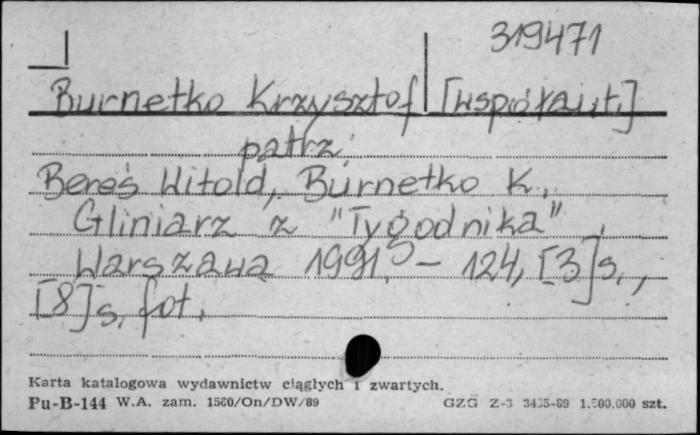 319471
Burnetko Krzysztof [współaut.]
patrz:
Bereś Witold, Burnetko K.,
Gliniarz z "Tygodnika",
Warszawa 1991. - 124, [3] s.,
[8] s. fot.
Karta katalogowa wydawnictw ciągłych i zwartych.
Pu-B-144 W.A. zam. 1560/On/DW/89 GZG Z-3 3435-89 1.500.000 szt.